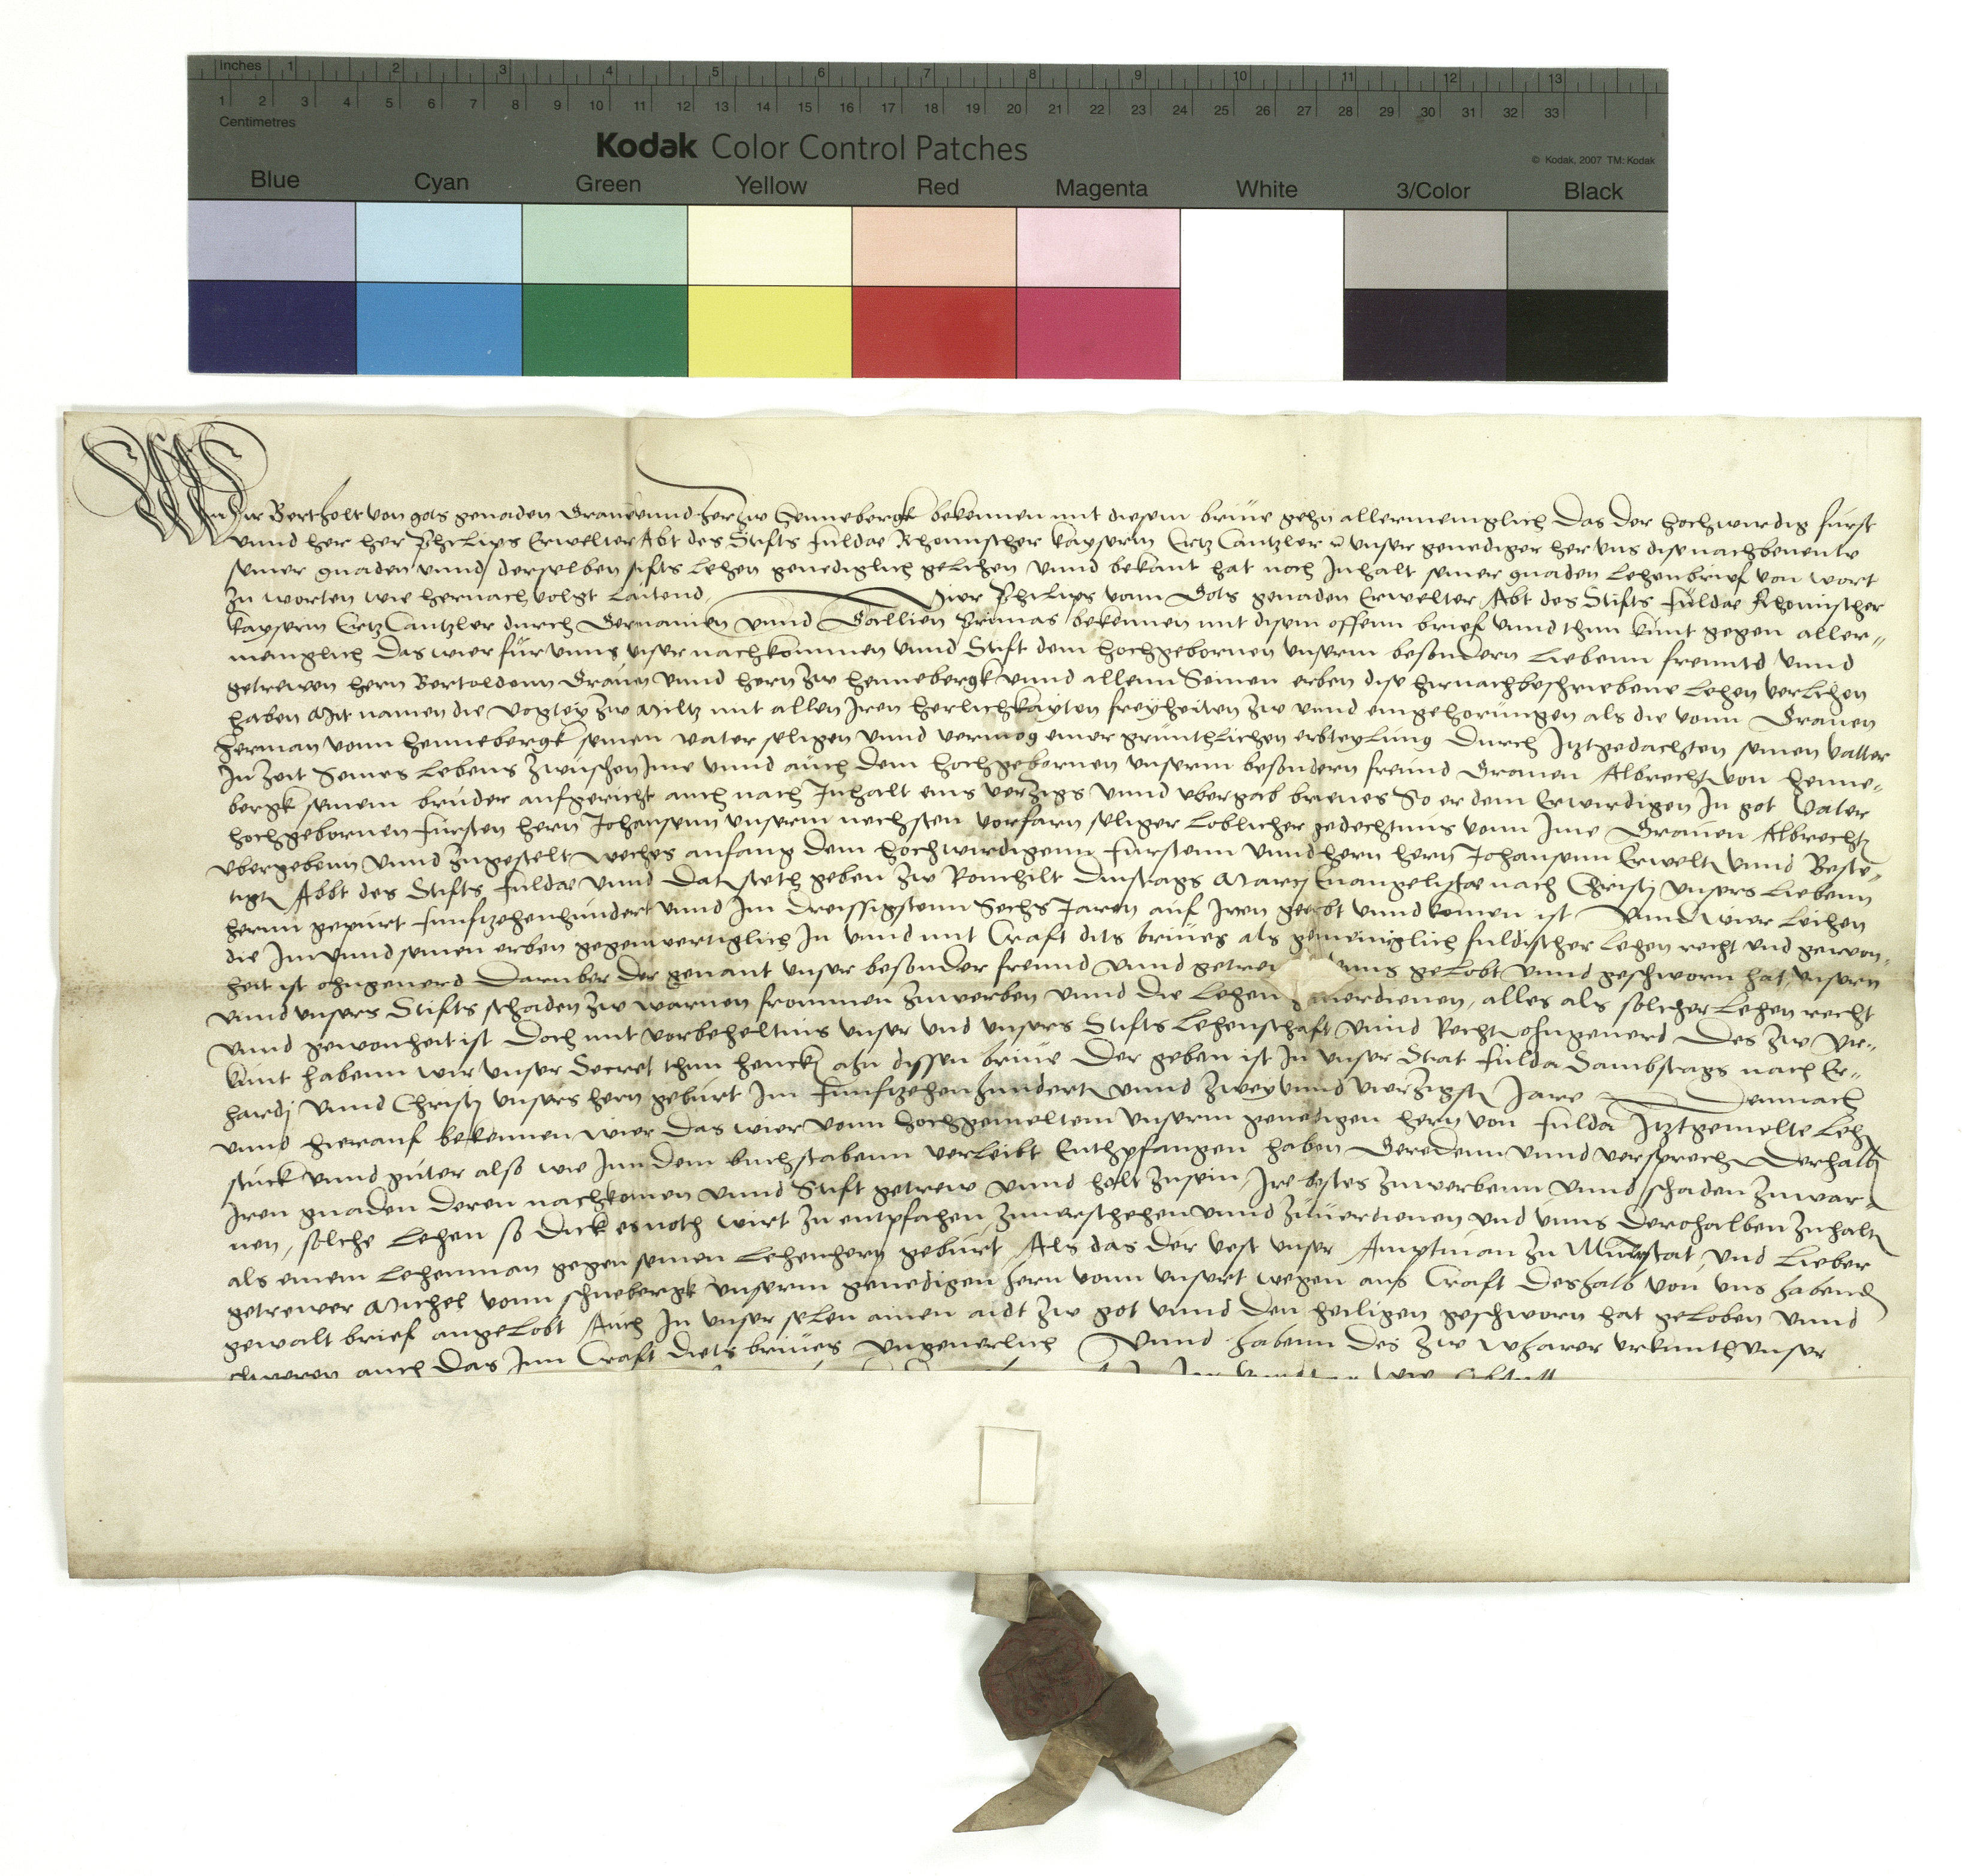 inches 1 2 3 4 5 6 7 8 9 10 11 12 13
1 2 3 4 5 6 7 8 9 10 11 12 13 14 15 16 17 18 19 20 21 22 23 24 25 26 27 28 29 30 31 32 33
Centimetres
Kodak Color Control Patches
© Kodak, 2007 TM: Kodak
Blue Cyan Green Yellow Red Magenta White 3/Color Black
Wir Bertholt von gots genaden Graue vnnd her zw Hennebergk bekennen mit diesem briue gehn allermeniglich Das der hochwirdig furst
vnnd her her Philips Erwelter Abt des Stifts fuldae Rhomischer kayserin Ertz Cantzler unser genediger her vns dise nachbenente
seiner gnaden vnnd derselben stifts Lehen genediglich gelihen vnnd bekant hat noch Inhalt seiner gnaden Lehenbrief von wort
zu worten wie hernach volgt Lautend Wier Philips vonn Gots genaden Erwelter Abt des Stifts fuldae Rhomischer
kayserin Ertz Cantzler durch Germanien vnnd Gallien Primas bekennen mit disem offenn brief vnnd thun kunt gegen aller-
menglich Das wier für vnns vnser nachkommen vnnd Stift dem hochgebornen vnserm besondern Liebenn freundt vnnd
getrewen hern Bertoldenn Grauen vnnd hern zw hennebergk vnnd allenn Seinen erben dise hirnachbeschriebene Lehen verlihen
haben Mit namen die vogtey zw Miltz mit allen Iren herlichkayten freyheiten zw vnnd eingehorungen als die vonn Grauen
Herman vonn hennebergk seinen vater seligen vnnd vermog einer gruntlichen erbteylung Durch Itztgedachten seinen vatter
In zeit Seines Lebens zwischen Ime vnnd auch dem hochgebornen vnserm besondern freund Grauen Albrecht von henne-
bergk seinem bruder aufgericht auch nach Inhalt eins verzigs vnnd vbergab briues So er dem Erwirdigen In got Vater
hochgebornen fursten hern Johansenn vnserm nechsten vorfarn seliger Loblicher gedechtnus vonn Ime Grauen Albrecht
vbergebenn vnnd zugestelt weches anfang Dem hochwirdigenn furstenn vnnd hern hern Johansenn Erwelt vnnd Beste-
tigt Abbt des Stifts fuldae vnnd Dat steth geben zw Romhilt Dinstags Marcj Euangelistae nach Christj vnsers Liebenn
hernn gepurt funftzehenhundert vnnd Im dreissigstenn Sechs Jaren auf Iren geubt vnnd komen ist Vnnd wier Leihen
die Im vnnd seinen erben gegenwertiglich In vnnd mit Craft dits briues als gemeiniglich fuldischer Lehen recht vnd gewon-
heit ist ohngeuerd Darnber Der genant vnser besonder freund vnnd getrew vnns gelobt vnnd geschworn hat, vnsern
vnnd vnsers Stifts schaden zw warnen frommen zuwerben vnnd die Lehen zuuerdienen, alles als solcher Lehen recht
vnnd gewonheit ist Doch mit vorbeheltnis vnser vnd vnsers Stifts Lehenschaft vnnd Recht ohngeuerd Des zw Vr-
kunt habenn wir vnser Secret thun hencken ahn dissen briue Der geben ist In vnser Stat fulda Sambstags nach Er-
hardj vnnd Christj vnsers hern geburt Im funftzehenhundert vnnd zwey vnnd vierzigst Jare Demnach
vnnd hierauf bekennen wier Das wier vonn hochgemeltem vnserm genedigen hern von fulda Itztgemelte Lehen
stuck vnnd guter also wie Inn dem buchstabenn verleibt Enthpfangen haben Geredenn vnnd versprech Derhalb
Iren gnaden Deren nachkomen vnnd Stift getrew vnnd holt zusein, Ire bestes zuwerbenn vnnd schaden zuwar-
nen, solche Lehen so Dick es noth wirt zu entpfahen, zuuersthehen vnnd zuuerdienen vnd vnns Derohalben zuhalten
als einem Lehenman gegen seinen Lehenhern geburt, Als das Der vest vnser Amptman zu Munrstat, vnd Lieber
getrewer Michel vonn schnebergk vnserm genedigen hern vonn vnsert wegen aus Craft Deshalb von vns habend
gewalt brief angelobt Auch In vnser selen ainen aidt zw got vnnd Den heiligen geschworn hat geloben vnnd
schweren auch das Inn Craft diets briues vngeuerlich Vnnd habenn Des zw wharer vrkunth vnser